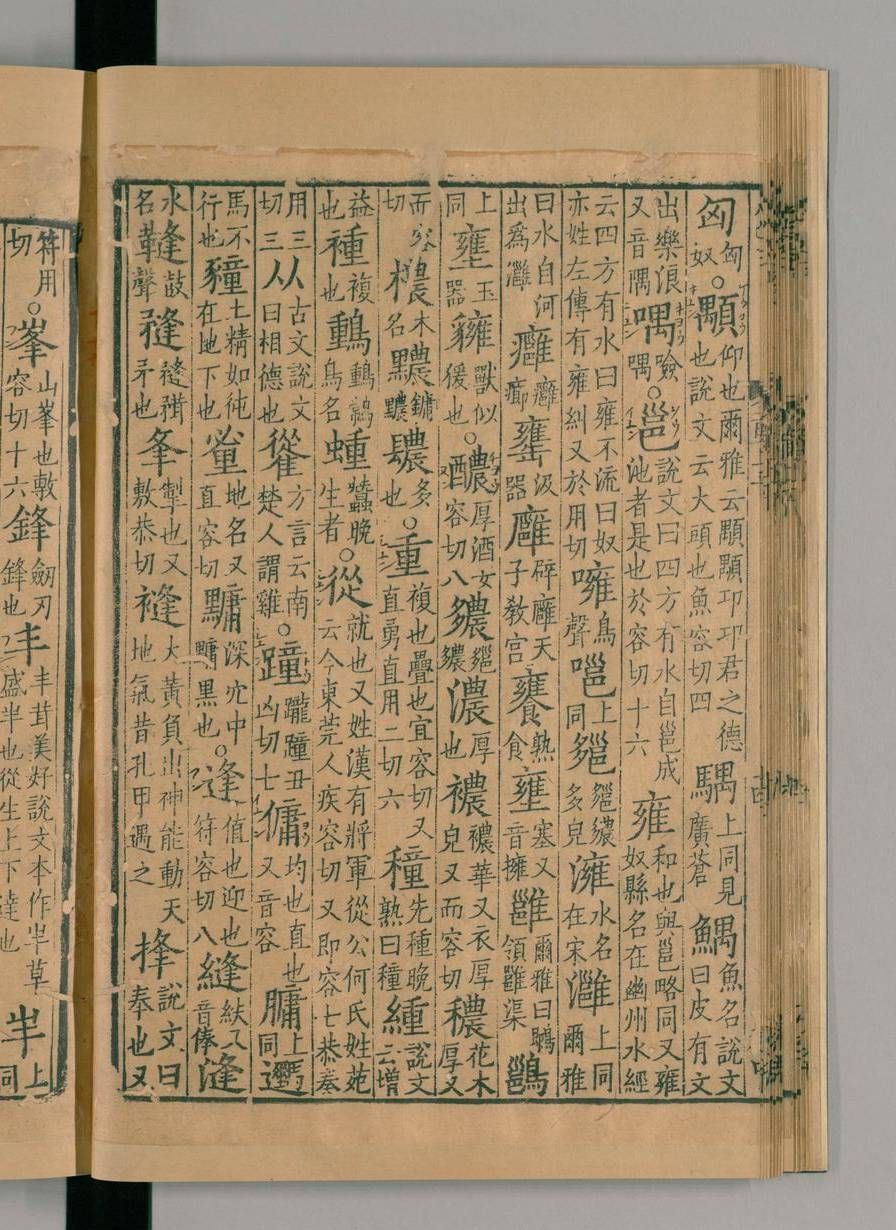 匈匈奴。顒仰也爾雅云顒顒卬卬君之德也說文云大頭也魚容切四䮩上同見廣蒼鰅魚名說文曰皮有文
出樂浪又音隅喁噞喁。邕說文曰四方有水自邕成池者是也於容切十六雍和也與邕略同又雍奴縣名在幽州水經
云四方有水曰雍不流曰奴亦姓左傳有雍糾又於用切噰鳥聲嗈上同多皃澭水名在宋灉上同爾雅
曰水自河出為灉癰癰癤罋汲器廱辟廱天子教宮饔熟食壅塞又音擁雝爾雅曰鶺領雝渠
上同玉器獸似猨也。醲厚酒女容切八濃厚也襛襛華又衣厚皃又而容切穠花木厚又
而容切檂木名多也。重複也疊也宜容切又直勇直用二切六種先種晚熟曰種緟說文云增
益也褈複也鳥名蝩蠶晚生者。從就也又姓漢有將軍從公何氏姓苑云今東莞人疾容切又即容七恭秦
用三切三从古文說文曰相德也方言云南楚人謂雞。蹱躘蹱丑凶切七傭均也直也又音容上同
馬不行也土精如㹠在地下也地名又直容切深穴中黑也。逢值也迎也符容切八縫紩又音俸漨
水名韼鼓聲矛也夆掣也又敷恭切大黃負山神能動天地氣昔孔甲遇之捀說文曰奉也又
符用切。峯山峯也敷容切十六鋒劒刃鋒也丰丰茸美好說文本作半草盛半也從生上下達也上同